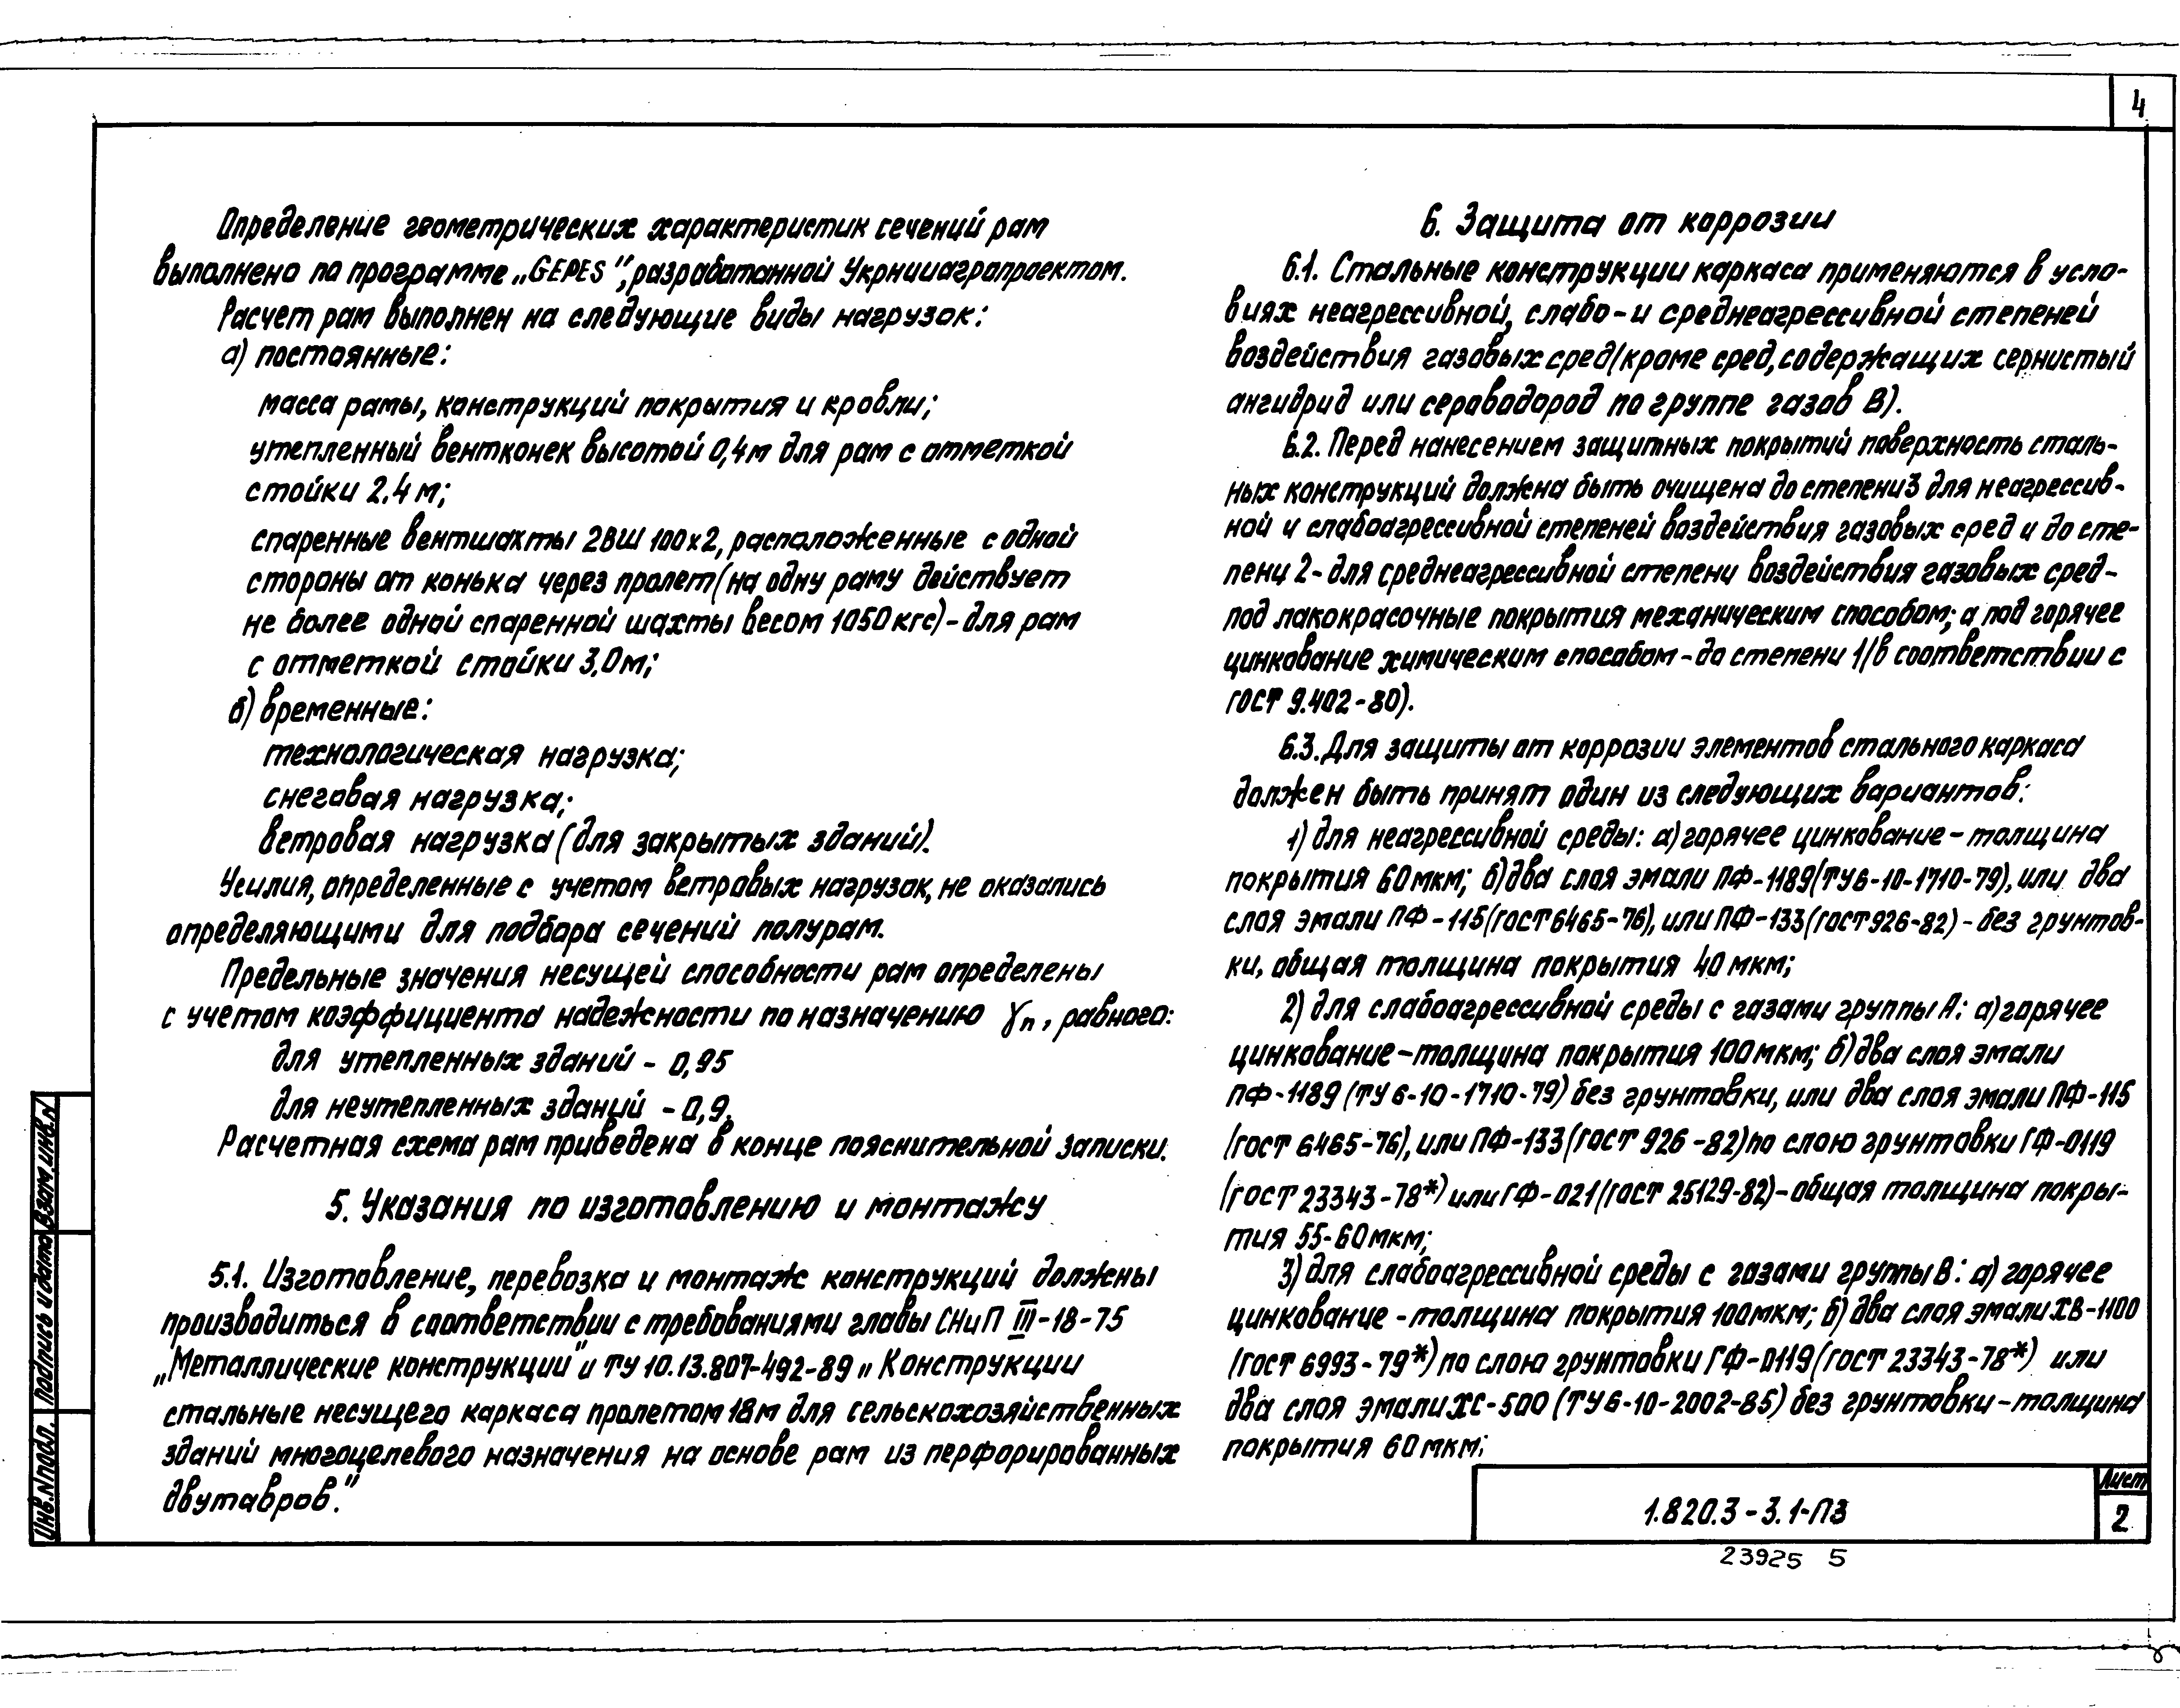 4
Определение геометрических характеристик сечений рам
выполнено по программе „GEPES", разработанной Укрнииагропроектом.
Расчет рам выполнен на следующие виды нагрузок:
а) постоянные:
масса рамы, конструкций покрытия и кровли;
утепленный вентконек высотой 0,4м для рам с отметкой
стойки 2.4 м;
спаренные вентшахты 2ВШ 100х2, расположенные с одной
стороны от конька через пролет (на одну раму действует
не более одной спаренной шахты весом 1050 кгс) - для рам
с отметкой стойки 3.0м;
б) временные:
технологическая нагрузка;
снеговая нагрузка;
ветровая нагрузка (для закрытых зданий).
Усилия, определенные с учетом ветровых нагрузок, не оказались
определяющими для подбора сечений полурам.
Предельные значения несущей способности рам определены
с учетом коэффициента надежности по назначению γn, равного:
для утепленных зданий - 0,95
для неутепленных зданий - 0,9.
Расчетная схема рам приведена в конце пояснительной записки.
5. Указания по изготовлению и монтажу
5.1. Изготовление, перевозка и монтаж конструкций должны
производиться в соответствии с требованиями главы СНиП III-18-75
„Металлические конструкции" и ТУ 10.13.807-492-89 „Конструкции
стальные несущего каркаса пролетом 18м для сельскохозяйственных
зданий многоцелевого назначения на основе рам из перфорированных
двутавров."
6. Защита от коррозии
6.1. Стальные конструкции каркаса применяются в усло-
виях неагрессивной, слабо- и среднеагрессивной степеней
воздействия газовых сред (кроме сред, содержащих сернистый
ангидрид или сероводород по группе газов В).
6.2. Перед нанесением защитных покрытий поверхность сталь-
ных конструкций должна быть очищена до степени 3 для неагрессив-
ной и слабоагрессивной степеней воздействия газовых сред и до сте-
пени 2 - для среднеагрессивной степени воздействия газовых сред -
под лакокрасочные покрытия механическим способом; а под горячее
цинкование химическим способом - до степени 1 (в соответствии с
ГОСТ 9.402-80).
6.3. Для защиты от коррозии элементов стального каркаса
должен быть принят один из следующих вариантов:
1) для неагрессивной среды: а) горячее цинкование - толщина
покрытия 60мкм; б) два слоя эмали ПФ-1189 (ТУ6-10-1710-79), или два
слоя эмали ПФ-115 (ГОСТ 6465-76), или ПФ-133 (ГОСТ 926-82) - без грунтов-
ки, общая толщина покрытия 40 мкм;
2) для слабоагрессивной среды с газами группы А: а) горячее
цинкование - толщина покрытия 100мкм; б) два слоя эмали
ПФ-1189 (ТУ 6-10-1710-79) без грунтовки, или два слоя эмали ПФ-115
(ГОСТ 6465-76), или ПФ-133 (ГОСТ 926-82) по слою грунтовки ГФ-0119
(ГОСТ 23343-78*) или ГФ-021 (ГОСТ 25129-82) - общая толщина покры-
тия 55-60мкм;
3) для слабоагрессивной среды с газами группы В: а) горячее
цинкование - толщина покрытия 100мкм; б) два слоя эмали ХВ-1100
(ГОСТ 6993-79*) по слою грунтовки ГФ-0119 (ГОСТ 23343-78*) или
два слоя эмали ХС-500 (ТУ6-10-2002-85) без грунтовки - толщина
покрытия 60 мкм;
Инв.N подл. Подпись и дата Взам.инв.N
1.820.3-3.1-ПЗ
Лист
2
23925 5